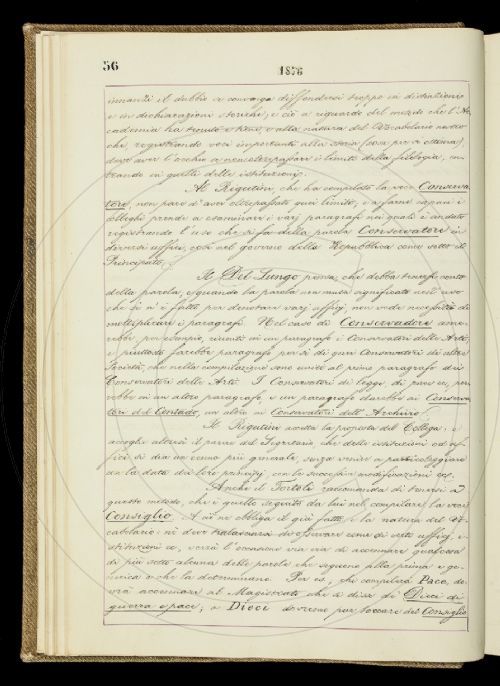 56
1876
innanzi il dubbio se convenga diffondersi troppo in distinzioni
e in dichiarazioni storiche; e ciò a riguardo del metodo che l'Ac-
cademia ha tenuto e tiene, e alla natura del Vocabolario nostro
che, registrando voci importanti alla storia
deve aver l'occhio a non oltrepassare i limiti della filologia, en-
trando in quelli delle istituzioni.
Al Rigutini, che ha compilato la voce Conserva-
tore, non pare d'aver oltrepassato quei limiti; e a farne capaci i
Colleghi prende a esaminare i varj paragrafi nei quali è andato
registrando l'uso che si fa della parola Conservatori in
diversi uffici, così nel governo della Repubblica come sotto il
Principato.
Il Del Lungo pensa, che debba tenersi conto
della parola, e quando la parola non muta significato nell'uso
che si è fatto per denotare varj uffizj non vede necessità di
moltiplicare i paragrafi. Nel caso di Conservadori ame-
rebbe, per esempio, riuniti in un paragrafo i Conservatori delle Arti,
e piuttosto farebbe paragrafo per sé di quei Conservatori di altre
Società, che nella compilazione sono uniti al primo paragrafo dei
Conservatori delle Arti. I Conservatori di legge, di pace ec, por-
rebbe in un altro paragrafo, e un paragrafo darebbe ai Conserva-
tori del Contado, un altro ai Conservatori dell'Archivio.
Il Rigutini accetta la proposta del Collega; e
accoglie altresì il parere del Segretario, che delle istituzioni od uf-
fici si dia un cenno più generale, senza venire a particoleggiare
con la data dei loro principj, con le successive modificazioni ec.
Anche il Tortoli raccomanda di tenersi a
questo metodo, che è quello seguito da lui nel compilare la voce
Consiglio. A ciò ne obbliga il già fatto, e la natura del Vo-
cabolario: nè dover tralasciarsi di osservare come di certi uffizj, e
istituzioni ec, verrà l'occasione via via di accennare qualcosa
di più sotto alcuna delle parole che seguono alla prima e ge-
nerica o che la determinano. Per es., chi compilerà Pace, do-
vrà accennare al Magistrato che si disse di Dieci di
guerra e pace; a Dieci dovremo pur toccare del Consiglio